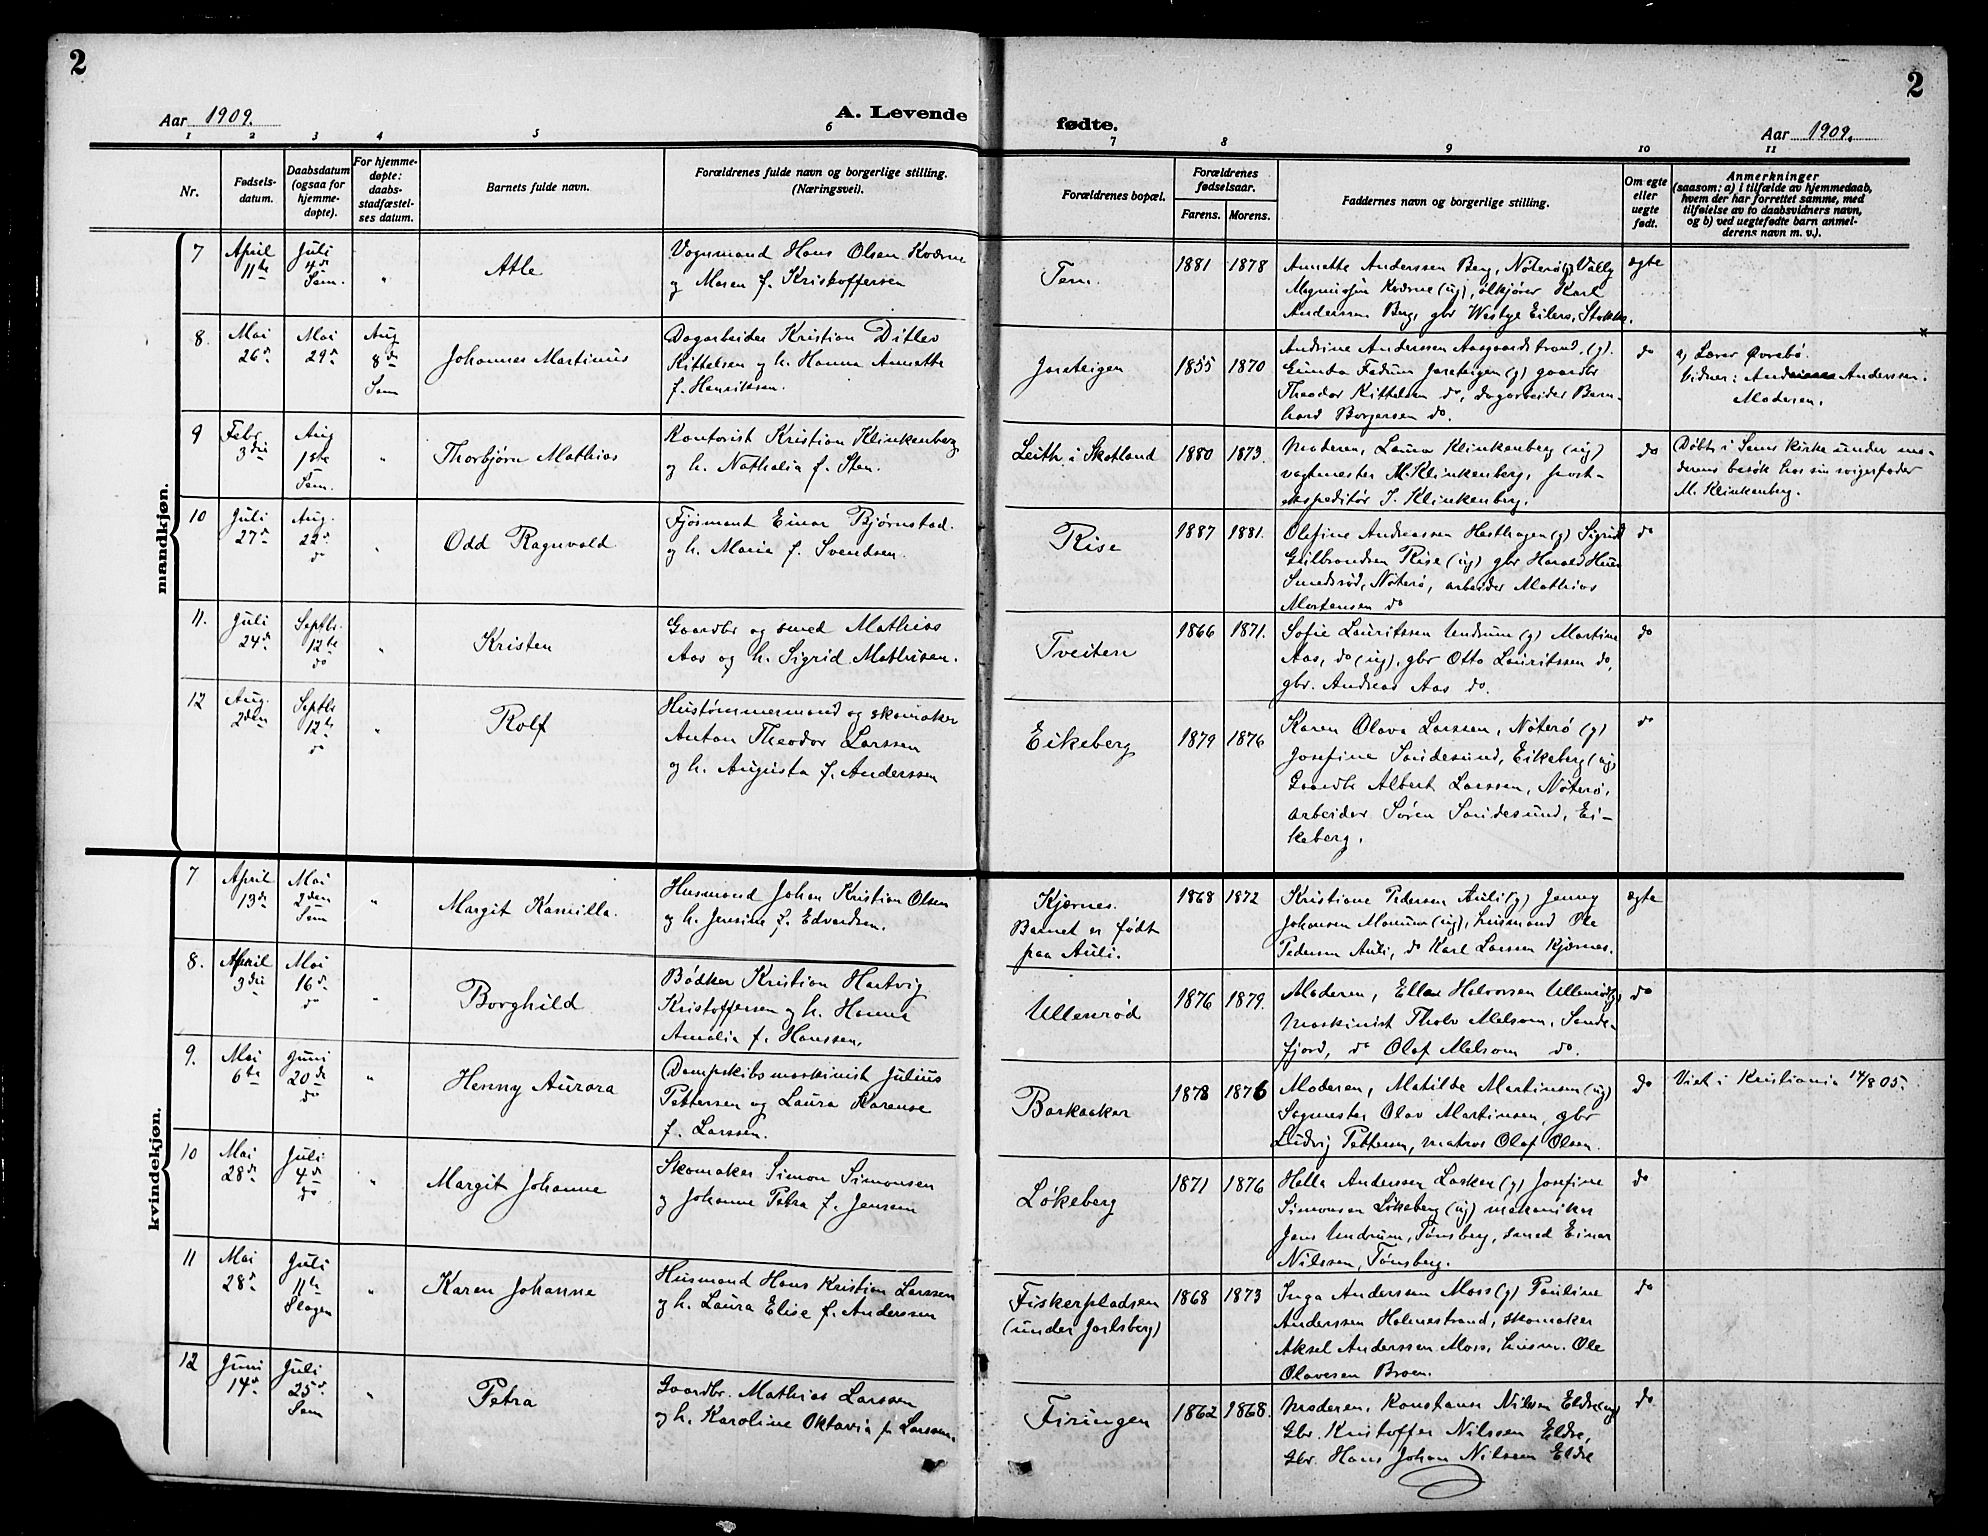 2
2
Aar 1909.
A. Levende
fødte.
Aar 1909.
1 2 3 4 5 6 7 8 9 10 11
Nr.
Fødsels-
datum.
Daabsdatum
(ogsaa for
hjemme-
døpte).
For hjemme-
døpte:
daabs-
stadfæstel-
ses datum.
Barnets fulde navn.
Forældrenes fulde navn og borgerlige stilling.
(Næringsvei).
Forældrenes bopæl.
Forældrenes
fødselsaar.
Farens. Morens.
Faddernes navn og borgerlige stilling.
Om egte
eller
uegte
født.
Anmerkninger
(saasom: a) i tilfælde av hjemmedaab,
hvem der har forrettet samme, med
tilføielse av to daabsvidners navn,
og b) ved uegtefødte barn anmel-
derens navn m. v.).
mandkjøn.
7
April
11te
Juli
4de
Sem.
"
Atle
Vognmand Hans Olsen Kværne
og Maren f. Kristoffersen
Sem.
1881 1878
Annette Anderssen Berg, Nøterø (g) Vally
Magnussen Kværne (ug), ølkjører Karl
Anderssen Berg, gbr Westye Eilers, Stokke.
ægte
8.
Mai
26de
Mai
29de
Aug
8de
Sem
Johannes Martinius
Dagarbeider Kristian Ditlev
Kittelsen og h. Hanna Annette
f. Henrikssen.
Jareteigen
1855 1870
Andrine Anderssen Aasgaardstrand, (g).
Gunda Fadum Jareteigen (g) gaardbr
Theodor Kittelsen do, dagarbeider Bern-
hard Borgersen do.
do
a) Lærer Øvrebø.
Vidner: Anderssen.
Moderen.
x
9
Febr
3die
Aug
1ste
Sem.
"
Thorbjørn Mathias
Kontorist Kristian Klinkenberg
og h. Nathalia f. Sten.
Leith i Skotland
1880 1873.
Moderen, Laura Klinkenberg (ug)
vagtmester M. Klinkenberg, post-
ekspeditør J. Klinkenberg.
do
Døbt i Sems kirke under mo-
derens besøk hos sin svigerfader
M. Klinkenberg.
10
Juli
27de
Aug.
22de
do
"
Odd Ragnvald
Fjøsmand Einar Bjørnstad.
og h. Marie f. Svendsen.
Rise
1887 1881.
Olefine Andreassen Hesthagen (g) Sigrid
Gulbrandsen Rise (ug) gbr Harald
Smedsrød, Nøterø, arbeider Mathias
Mortensen do
do
11.
Juli
24de
Septbr.
12te
do
"
Kristen
Gaardbr og smed Mathias
Aas og h. Sigrid Mathisen.
Tveiten
1866 1871.
Sofie Lauritssen Undrum (g) Martine
Aas, do (ug), gbr Otto Lauritssen do,
gbr. Andreas Aas do.
do
12
Aug.
2den
Septbr
12te
do
"
Rolf
Hustømmermand og skomaker
Anton Theodor Larssen
og h. Augusta f. Anderssen
Eikeberg
1879 1876
Karen Olava Larssen, Nøterø (g)
Josefine Sandesund, Eikeberg (ug)
Gaardbr Albert Larssen, Nøterø,
arbeider Søren Sandesund, Ei-
keberg.
do
kvindekjøn.
7
April
13de
Mai
2den
Sem
"
Margit Kamilla.
Husmand Johan Kristian Olsen
og h. Jensine f. Edvardsen.
Kjærnes.
Barnet er født
paa Auli.
1868 1872
Kristiane Pedersen Auli (g) Jenny
Johansen Manum (ug), husmand Ole
Pedersen Auli, do Karl Larssen Kjærnes.
ægte
8.
April
3die
Mai
16de
do
"
Borghild
Bødker Kristian Hartvig
Kristoffersen og h. Hanna
Amalia f. Hanssen.
Ullenrød
1876 1879.
Moderen, Ella Halvorsen Ullenrød (g)
Maskinist Thale Melsom, Sande-
fjord, do Olaf Melsom do.
do
9.
Mai
6te
Juni
20de
do
"
Henny Aurora
Dampskibsmaskinist Julius
Pettersen og Laura Karense
f. Larssen.
Barkaaker
1878 1876
Moderen, Matilde Martinsen (ug)
Sagmester Olav Martinsen, gbr
Ludvig Pettersen, matros Olaf Olsen.
do
Viet i Kristiania 14/8 05.
10
Mai
28de
Juli
4de
do
"
Margit Johanne
Skomaker Simon Simonsen
og Johanne Petra f. Jensen
Løkeberg
1871 1876
Helle Anderssen Lasken (g) Josefine
Simonsen Løkeberg (ug) mekaniker
Jens Undrum, Tønsberg, smed Einar
Nilssen, Tønsberg.
do
11
Mai
28de
Juli
11te
Slagen
"
Karen Johanne
Husmand Hans Kristian Larssen
og h. Laura Elise f. Anderssen
Fiskerpladsen
(under Jarlsberg)
1868 1873
Inga Anderssen Moss (g) Pauline
Anderssen Holmestrand, skomaker
Aksel Anderssen Moss, husm. Ole
Olavesen Broen.
do
12
Juni
14de
Juli
25de
Sem
"
Petra
Gaardbr. Mathias Larssen
og h. Karoline Oktavia f. Larssen.
Firingen
1862 1868.
Moderen, Konstanse Nilsen Eldre (ug)
Gbr. Kristoffer Nilssen Eldre,
Gbr. Hans Johan Nilssen Eldre
do